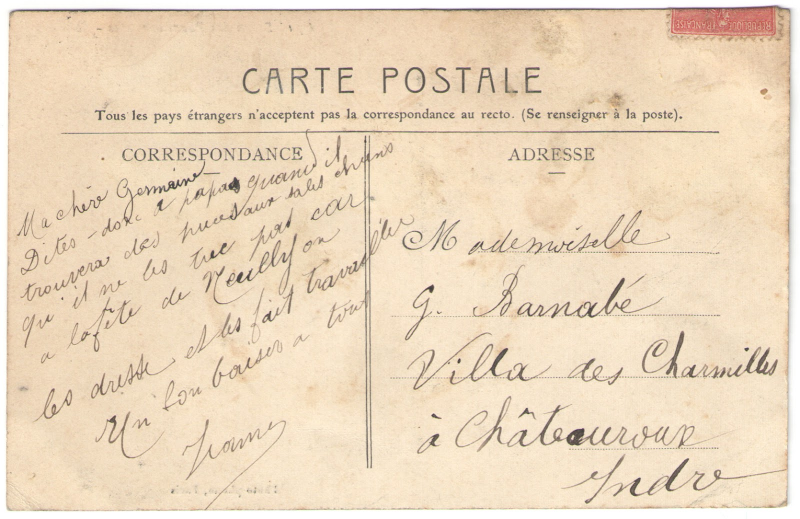 RÉPUBLIQUE FRANÇAISE
CARTE POSTALE
Tous les pays étrangers n'acceptent pas la correspondance au recto. (Se renseigner à la poste).
CORRESPONDANCE
Ma chère Germaine
Dites-donc à papa quand il
trouvera des puces aux sales chiens
qu'il ne les tue pas car
a la fête de Neuilly on
les dresse et les fait travailler
Un bon baiser a tous
ADRESSE
Mademoiselle
G. Barnabé
Villa des Charmilles
à Châteauroux
Indre